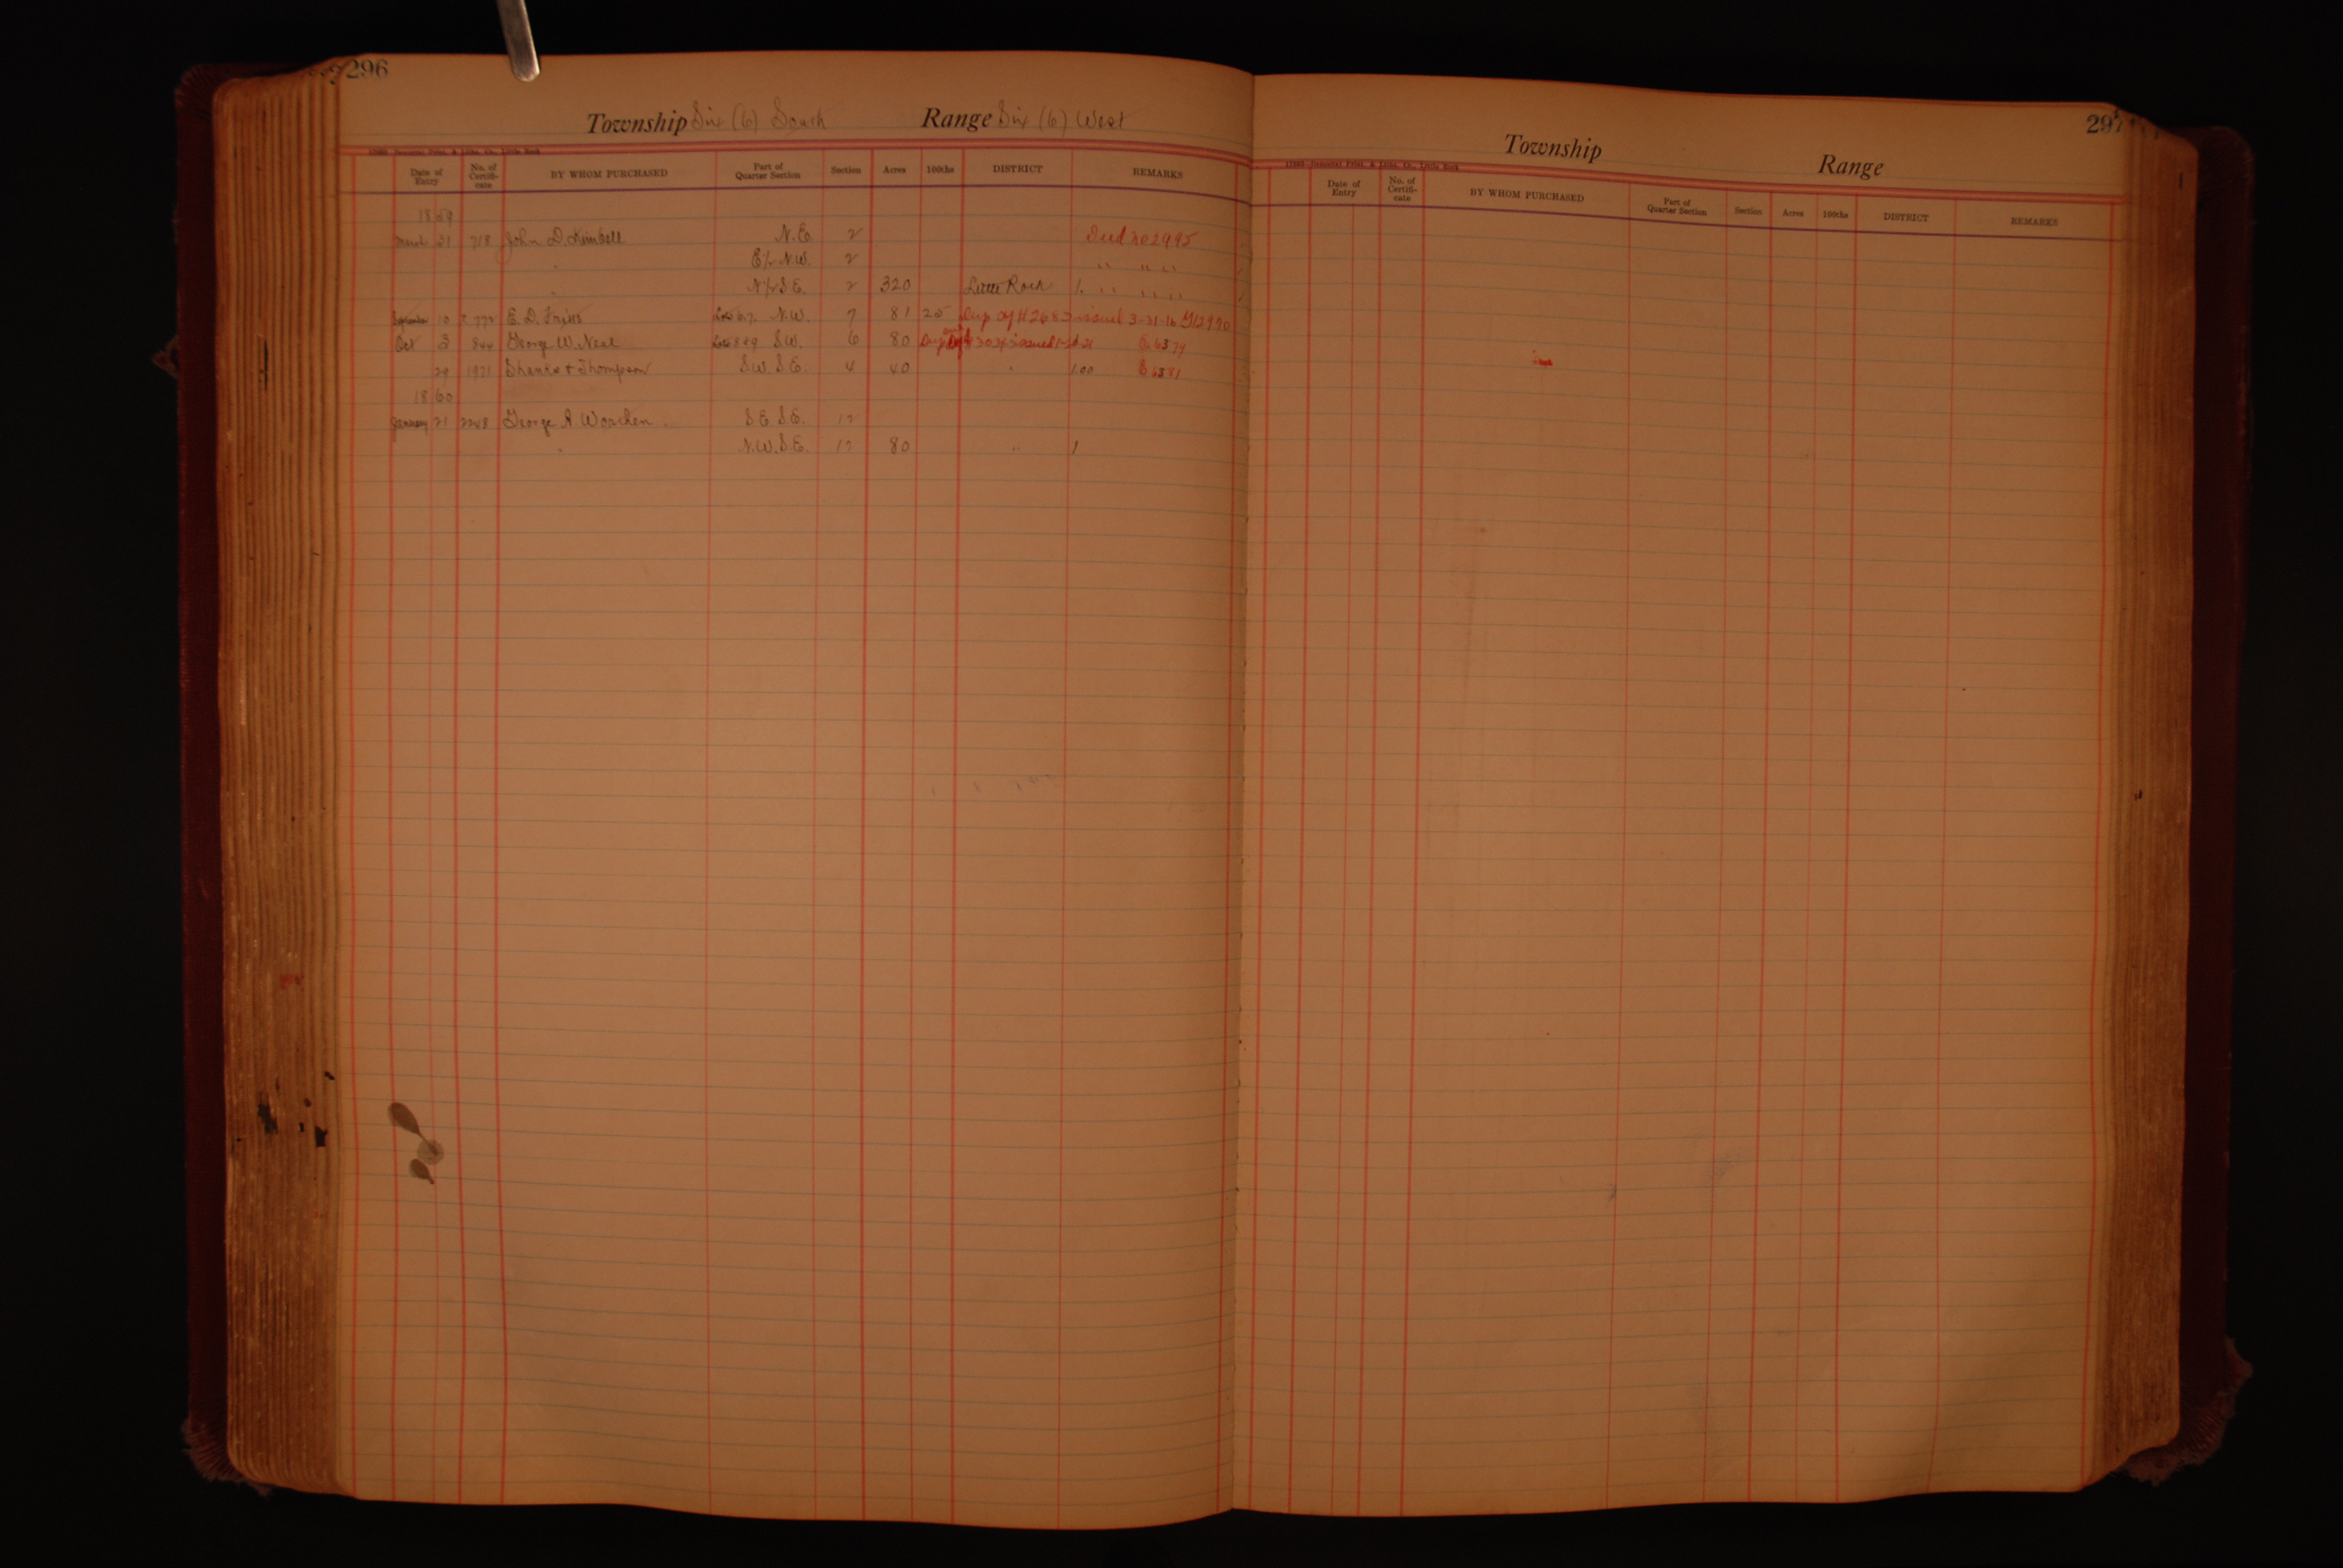 296
Township Six (6) South Range Six (6) West
Date of Entry No. of Certifi-cate BY WHOM PURCHASED Part of Quarter Section Section Acres 100ths DISTRICT REMARKS
1859
March 31 718 John D. Kimbell N.E. 2 Deed no 2995
" E½ N.W. 2 " " "
" N½ S.E. 2 320 Little Rock 1. " " " "
September 10 E. D. Lots 6.7. N.W. 7 81 25 Dup of # issued 3-31-16
Oct 3 844 George W. Neal Lots 8 & 9 S.W. 6 80 issued
29 1971 Shanks & Thompson S.W. S.E. 4 40 " 1.00
1860
January 21 2248 George A S.E. S.E. 12
" N.W. S.E. 12 80 " 1
297
Township Range
Date of Entry No. of Certifi-cate BY WHOM PURCHASED Part of Quarter Section Section Acres 100ths DISTRICT REMARKS